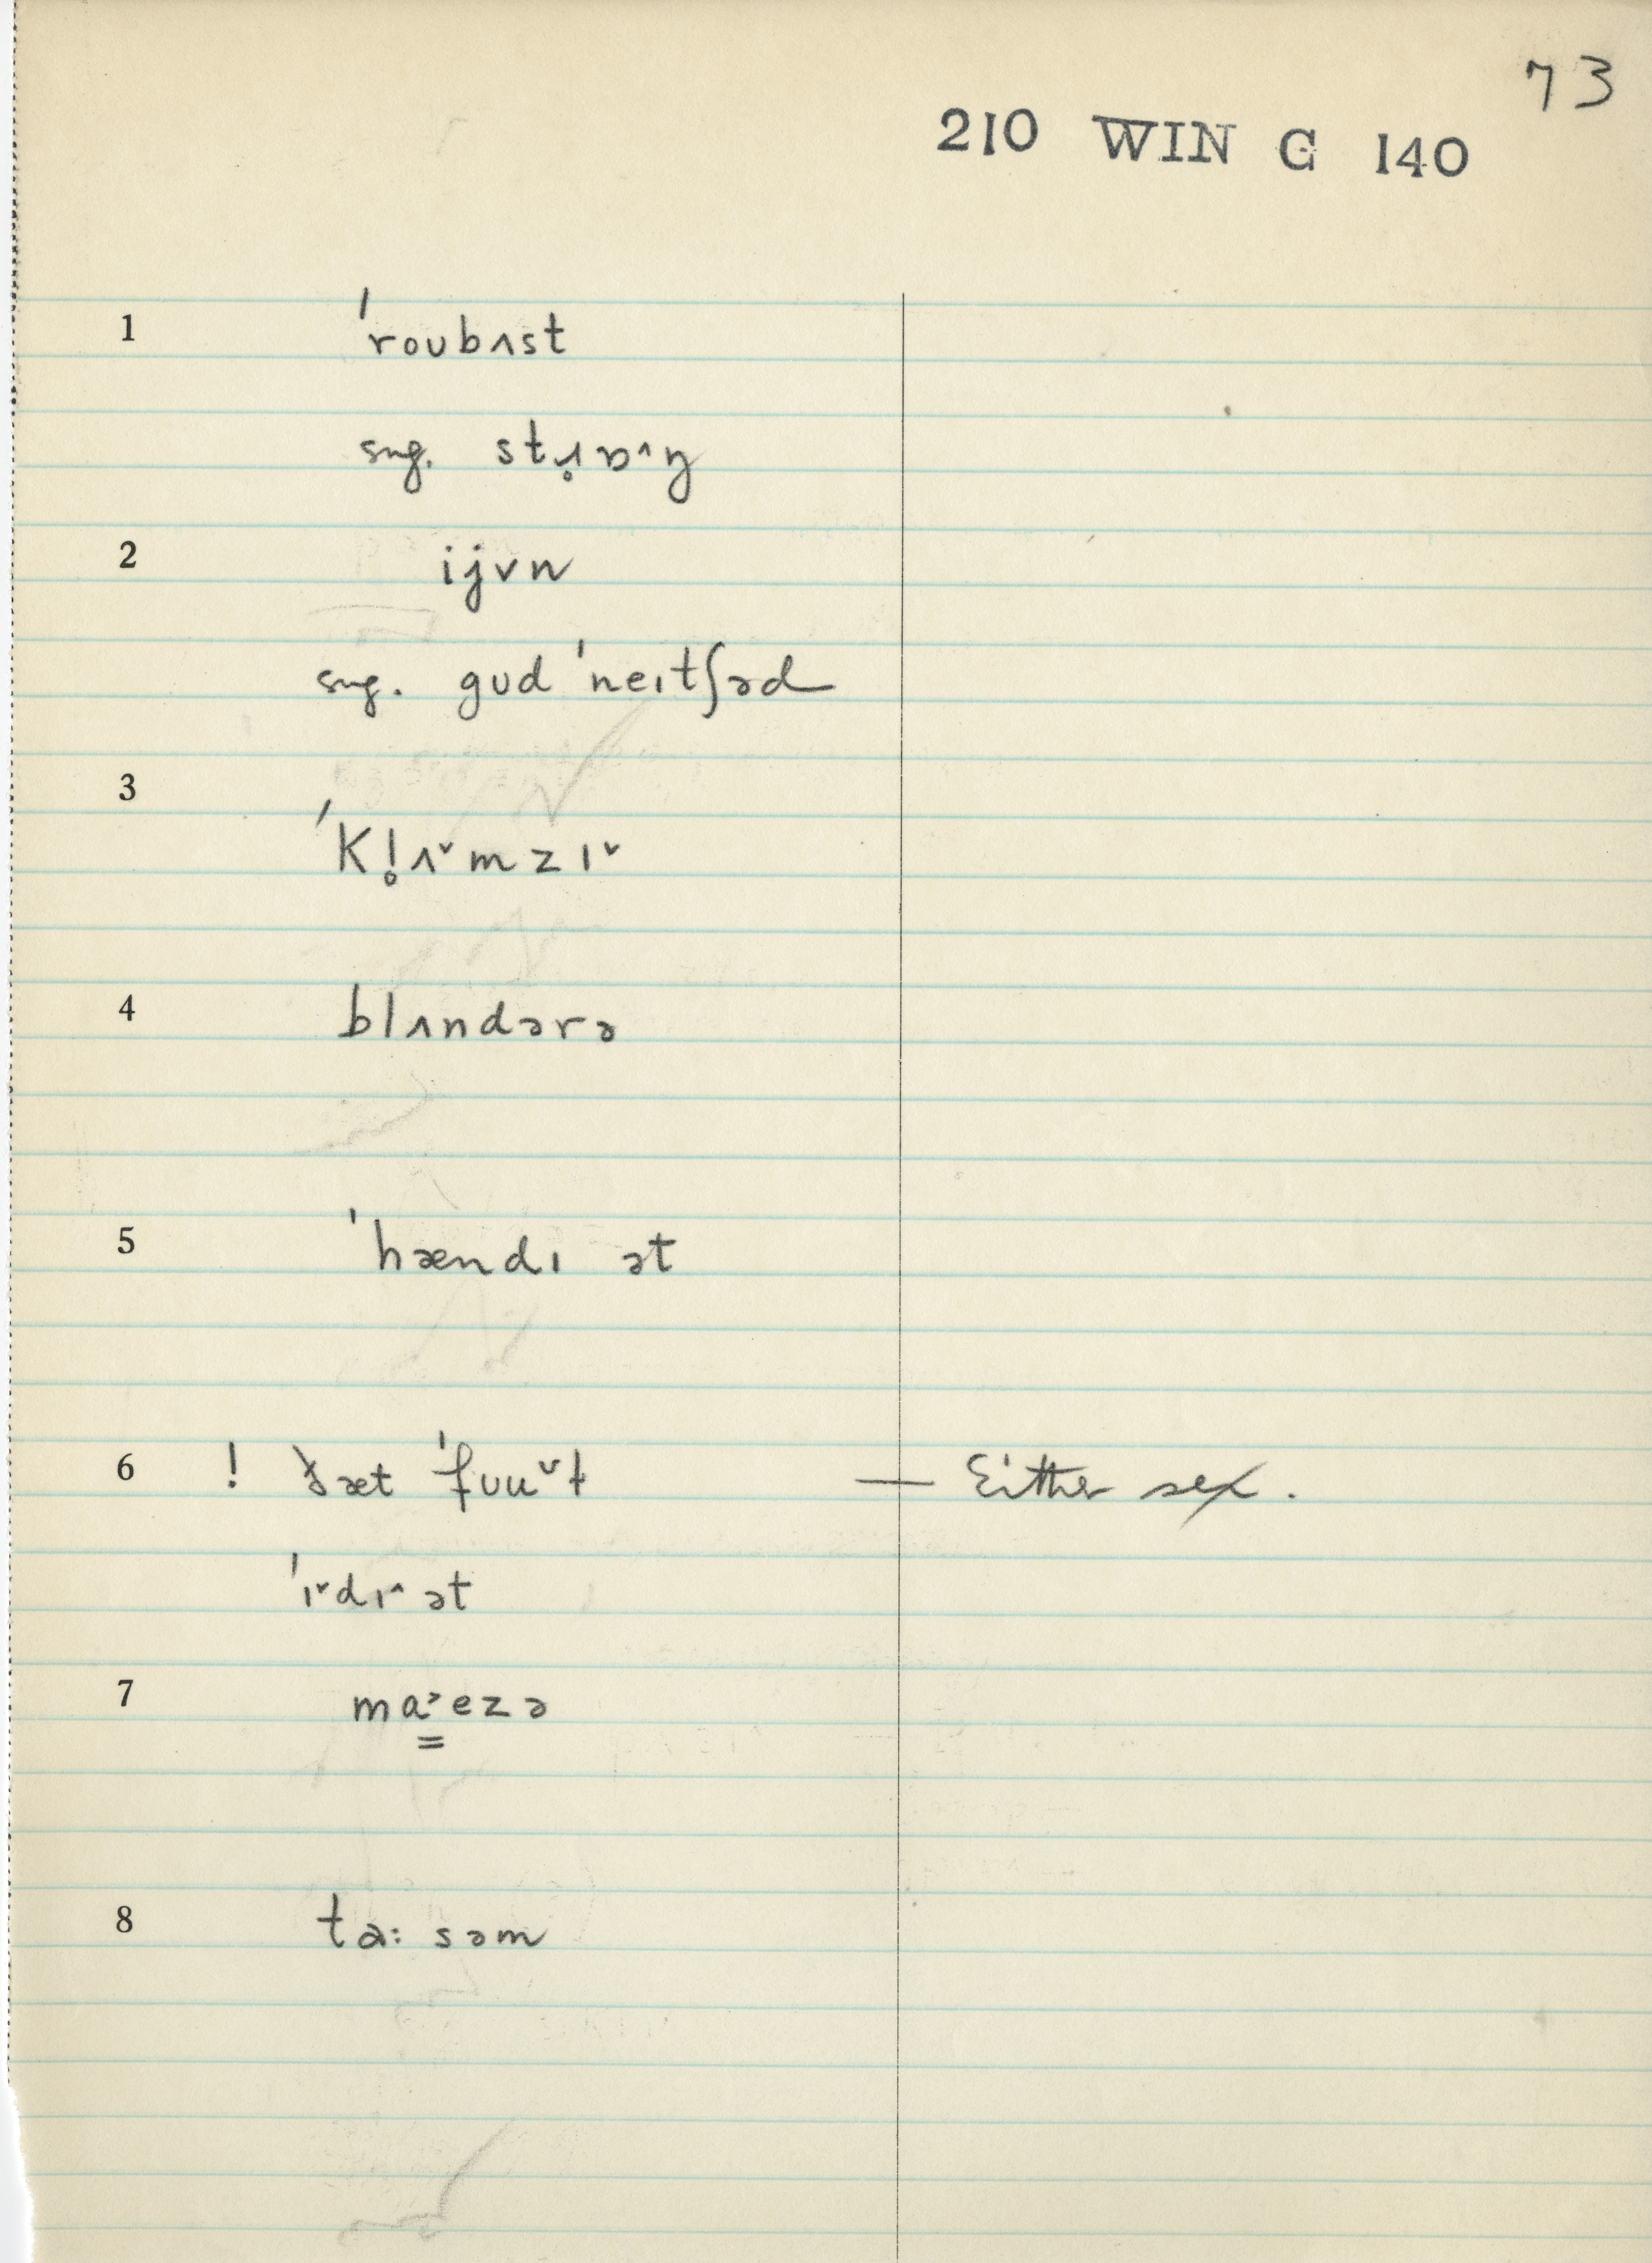 73
210 WIN G 140
1 ˈroubʌst
sug. strɒ˄ŋ
2 ijvn
sug. gud ˈneɪtʃəd
3 ˈkl̥ʌ˅mzɪ˅
4 blʌndərə
5 ˈhændɪ ət
6 ! ðæt ˈfuu˅ɫ — Either sex.
ˈɪ˅dɪ˄ ət
7 ma˃ezə
8 tɑ: səm